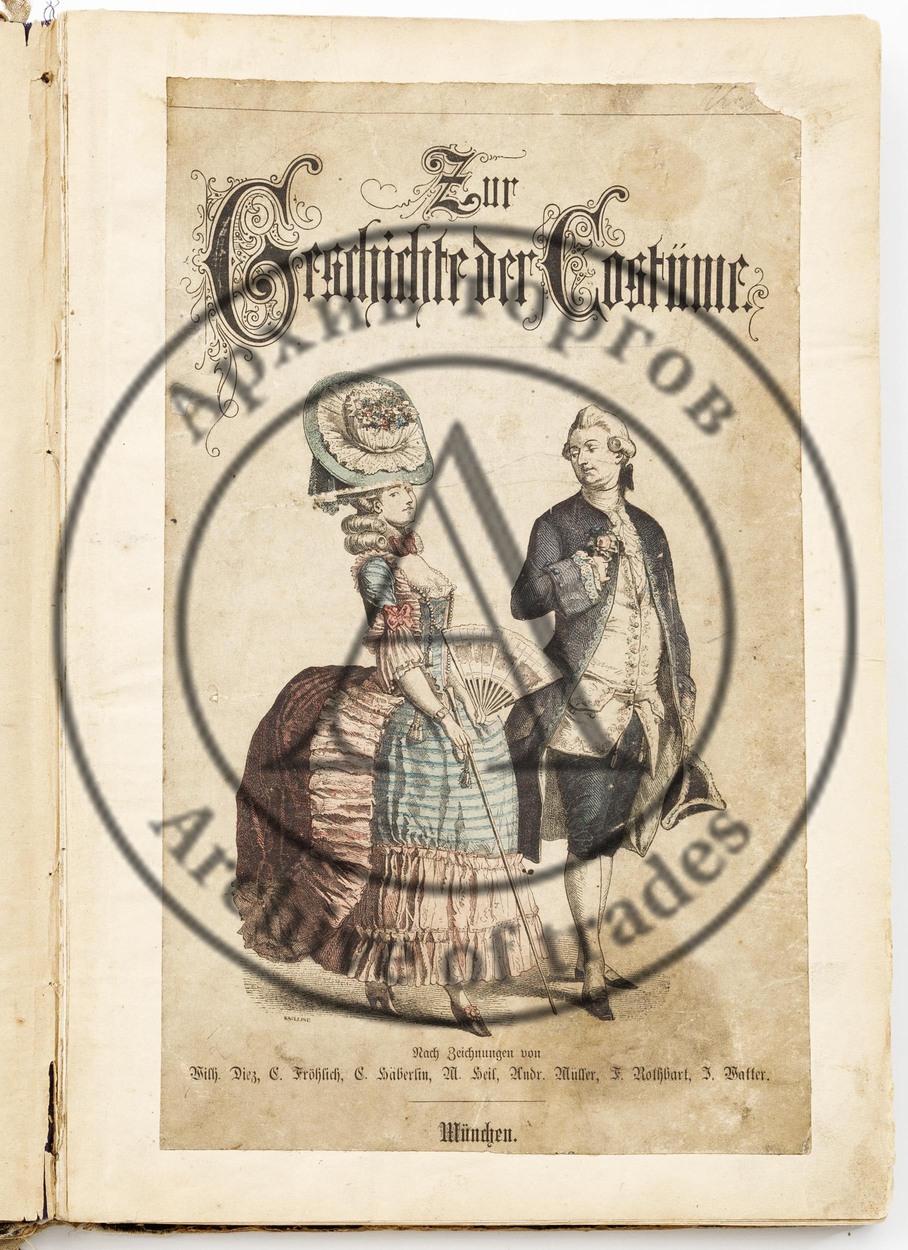 Zur
Geschichte der Costüme.
Архив торгов
Archive of trades
Nach Zeichnungen von
Wilh. Diez, C. Fröhlich, C. Häberlin, M. Heil, Andr. Müller, F. Rothbart, J. Watter.
München.